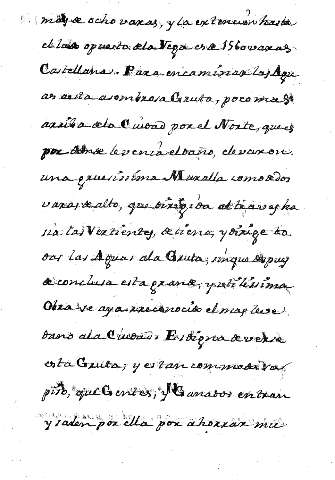 mas de ocho varas, y la extencion hasta
el lado opuesto de la Vega es de 1560 varas
Castellanas. Para encaminar las Agu
as a esta asombrosa Gruta, poco mas
arriba de la Ciudad por el Norte, que es
por donde le venia el daño, elevaron
una gruesissima Muralla como de dos
varas de alto, que dirigida al traves ha
sia las Vertientes, detiene, y dirige to
das las Aguas a la Gruta; sin que despues
de conclusa esta grande, y utilissima
Obra se aya reconocido el mas leve
daño a la Ciudad. Es digna de verse
esta Gruta; y es tan commoda su
piso, que Gentes, y Ganados entran
y salen por ella por ahorrar mu